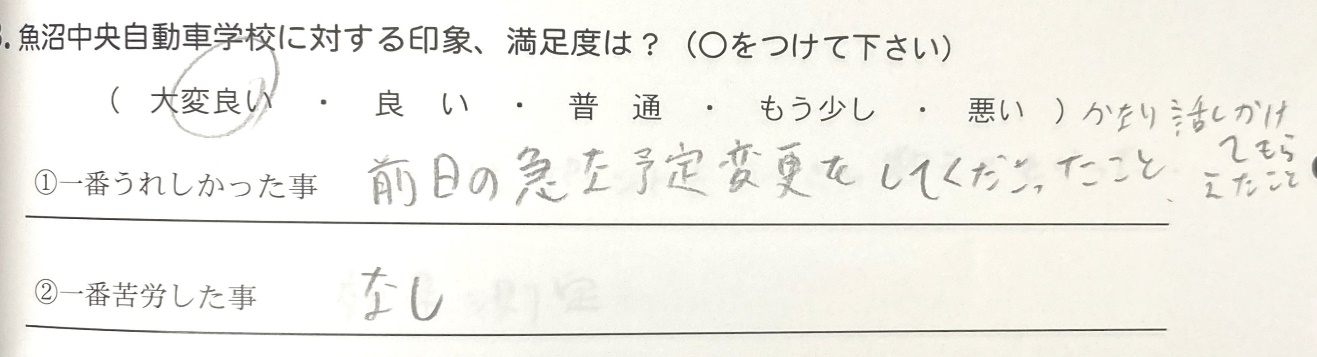 3.魚沼中央自動車学校に対する印象、満足度は？（〇をつけて下さい）
（　大変良い　・　良　い　・　普　通　・　もう少し　・　悪い　）
①一番うれしかった事　前日の急な予定変更をしてくださったこと、かなり話しかけ
てもら
えたこと
②一番苦労した事　なし